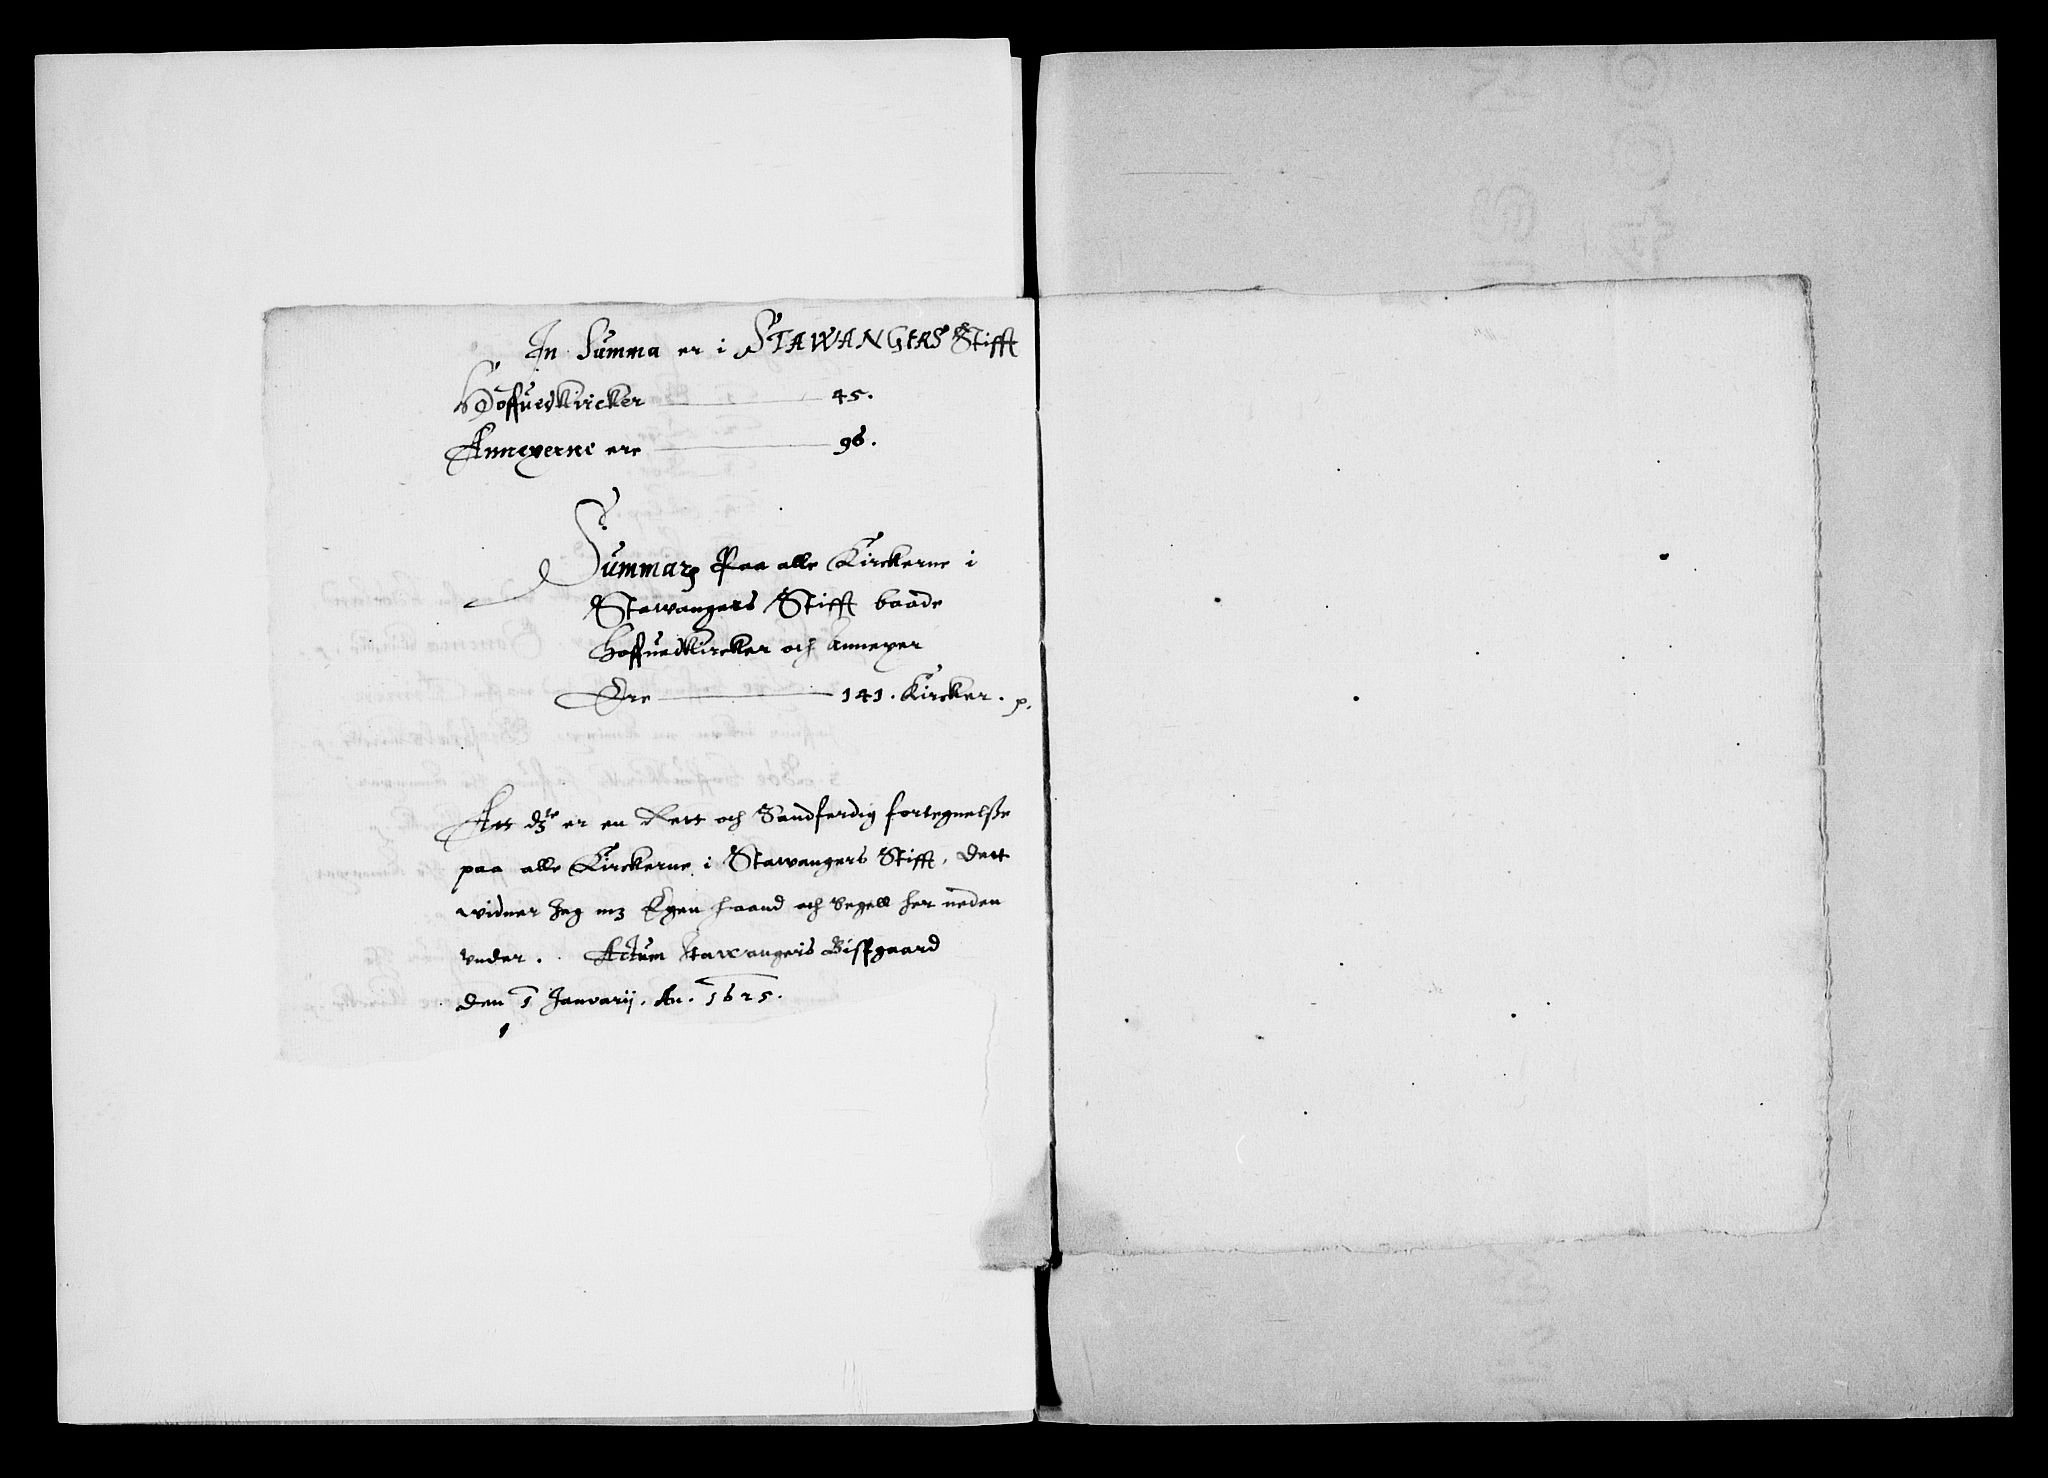 In Summa er i STAWANGERS Stifft
Hoffuedkircker — 45.
Annexerne ere — 96.
Summarum Paa alle Kirckerne i
Stawangers Stifft baade
Hoffuedkircker och Annexer
Ere — 141. Kircker. p.
Att dzte er en Rett och Sandferdig fortegnelsse
paa alle Kirckerne i Stawangers Stifft, dett
widner Jeg mz Egen haand och Segell her neden
vnder. Actum Stawangers Bispgaard
den 1 Januarij. An. 1625.